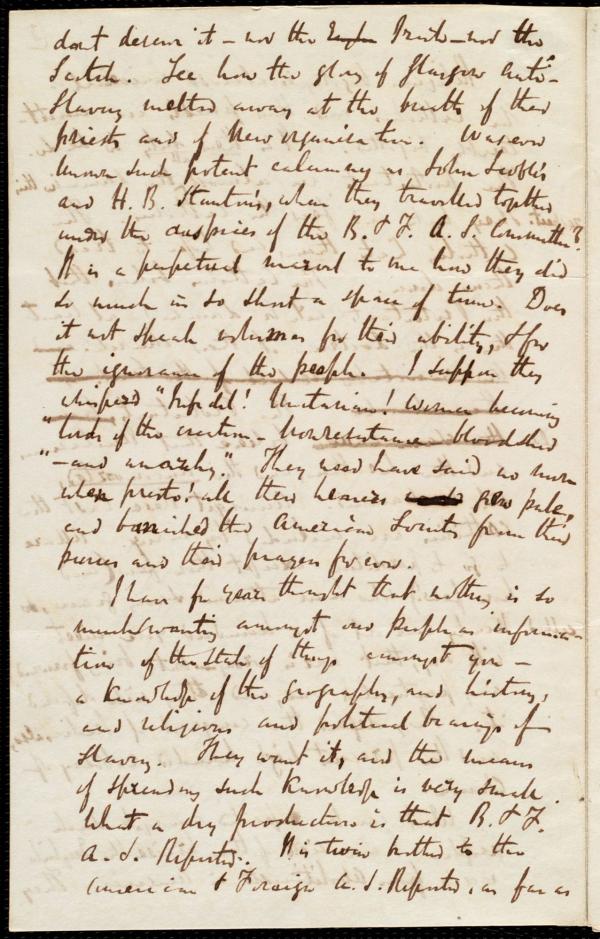 dont deserve it - nor the Irish - nor the
Scotch. See how the glory of Glasgow Anti-
Slavery melted away at the breath of their
priests and of New organisation. Was ever
known such potent calumny as John Scoble's
and H. B. Stanton's, when they travelled together
under the auspices of the B. & F. A. S. Committee?
It is a perpetual marvel to me how they did
so much in so short a space of time. Does
it not speak volumes for their ability, & for
the ignorance of the people. I suppose they
whispered "Infidel! Unitarian! women becoming
"lords of the creation - Nonresistance bloodshed
"- and anarchy." They need have said no more
when presto! all their hearers grew pale,
and banished the American Society from their
purses and their prayers for ever.
I have for years thought that nothing is so
much wanting amongst our people as informa-
tion of the state of things amongst you -
a knowledge of the geography, and history,
and religious and political bearings of
Slavery. They want it, and the means
of spreading such knowledge is very small.
What a dry production is that B. & F.
A. S. Reporter. It is twin brother to the
American & Foreign A. S. Reporter, as far as